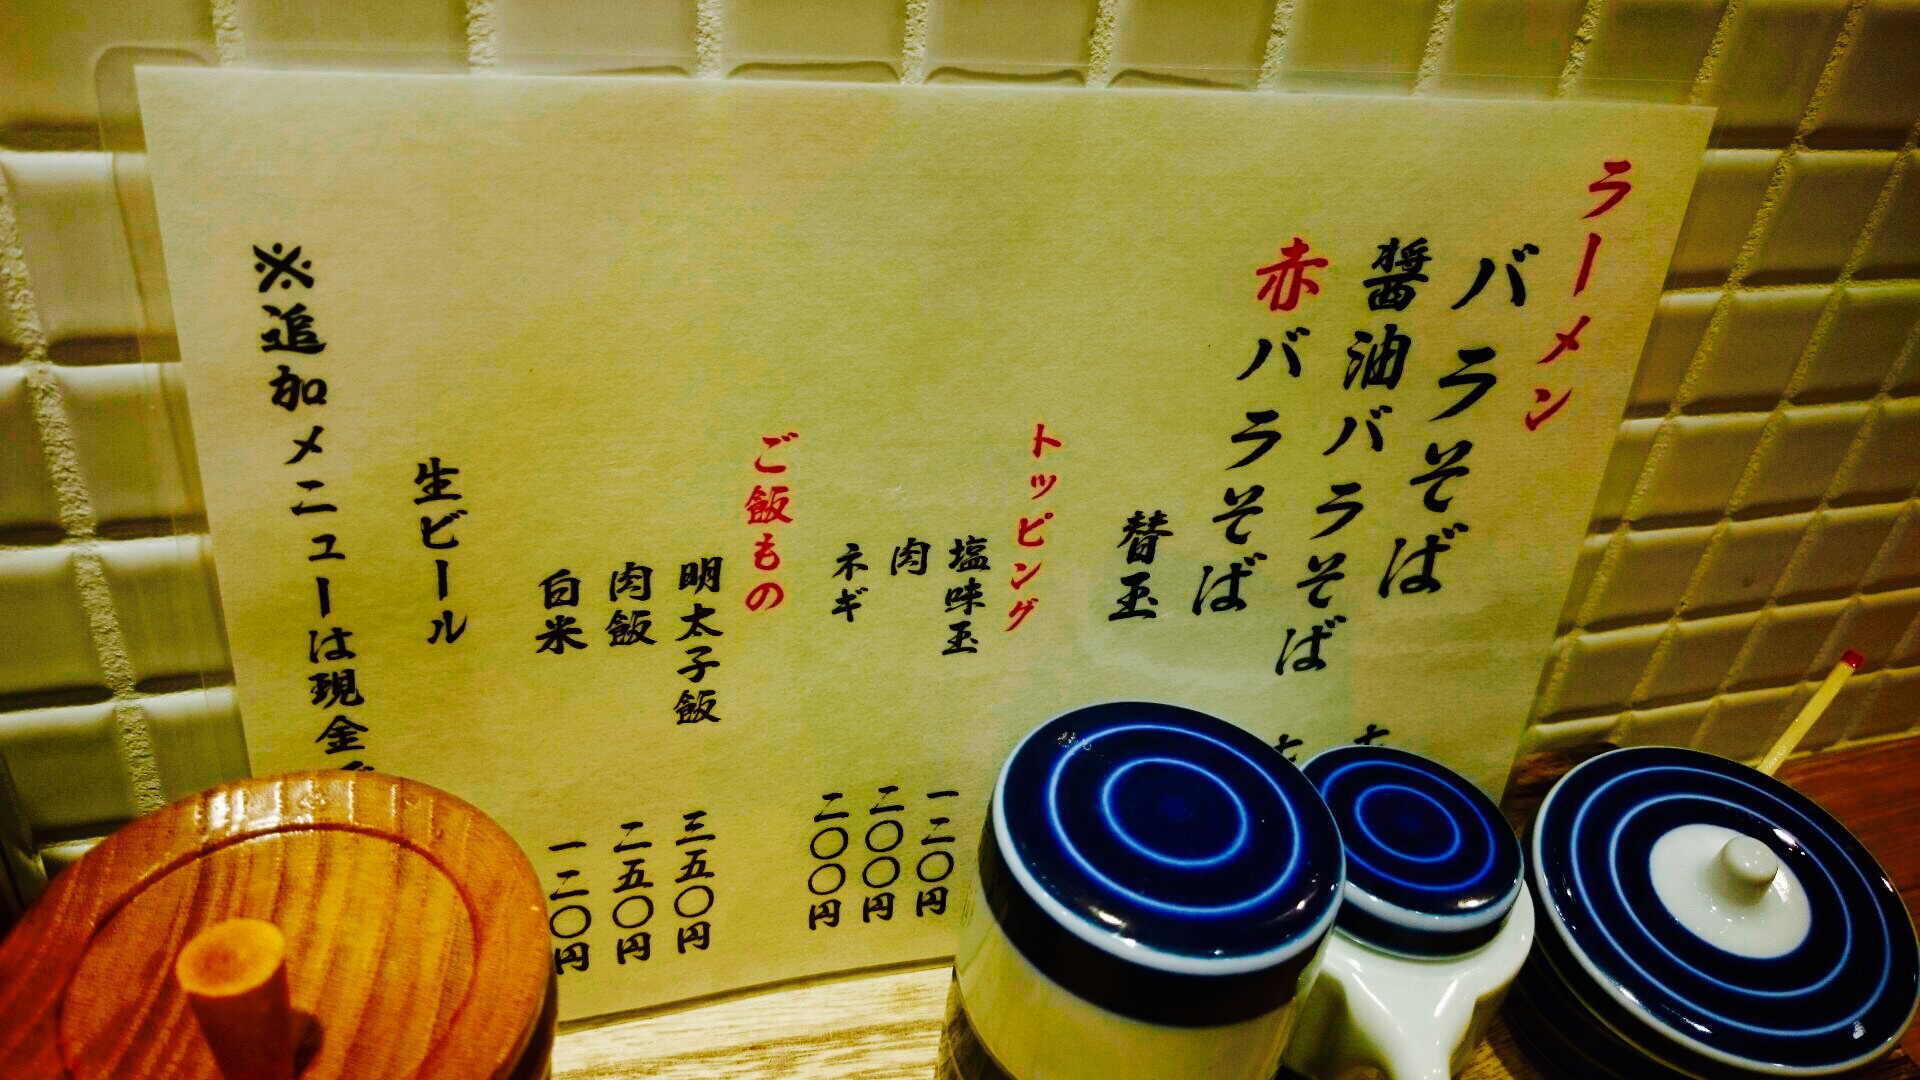 ラーメン
バラそば
醤油バラそば
赤バラそば
替玉
トッピング
塩味玉 一二〇円
肉 二〇〇円
ネギ 二〇〇円
ご飯もの
明太子飯 三五〇円
肉飯 二五〇円
白米 一二〇円
生ビール
※追加メニューは現金